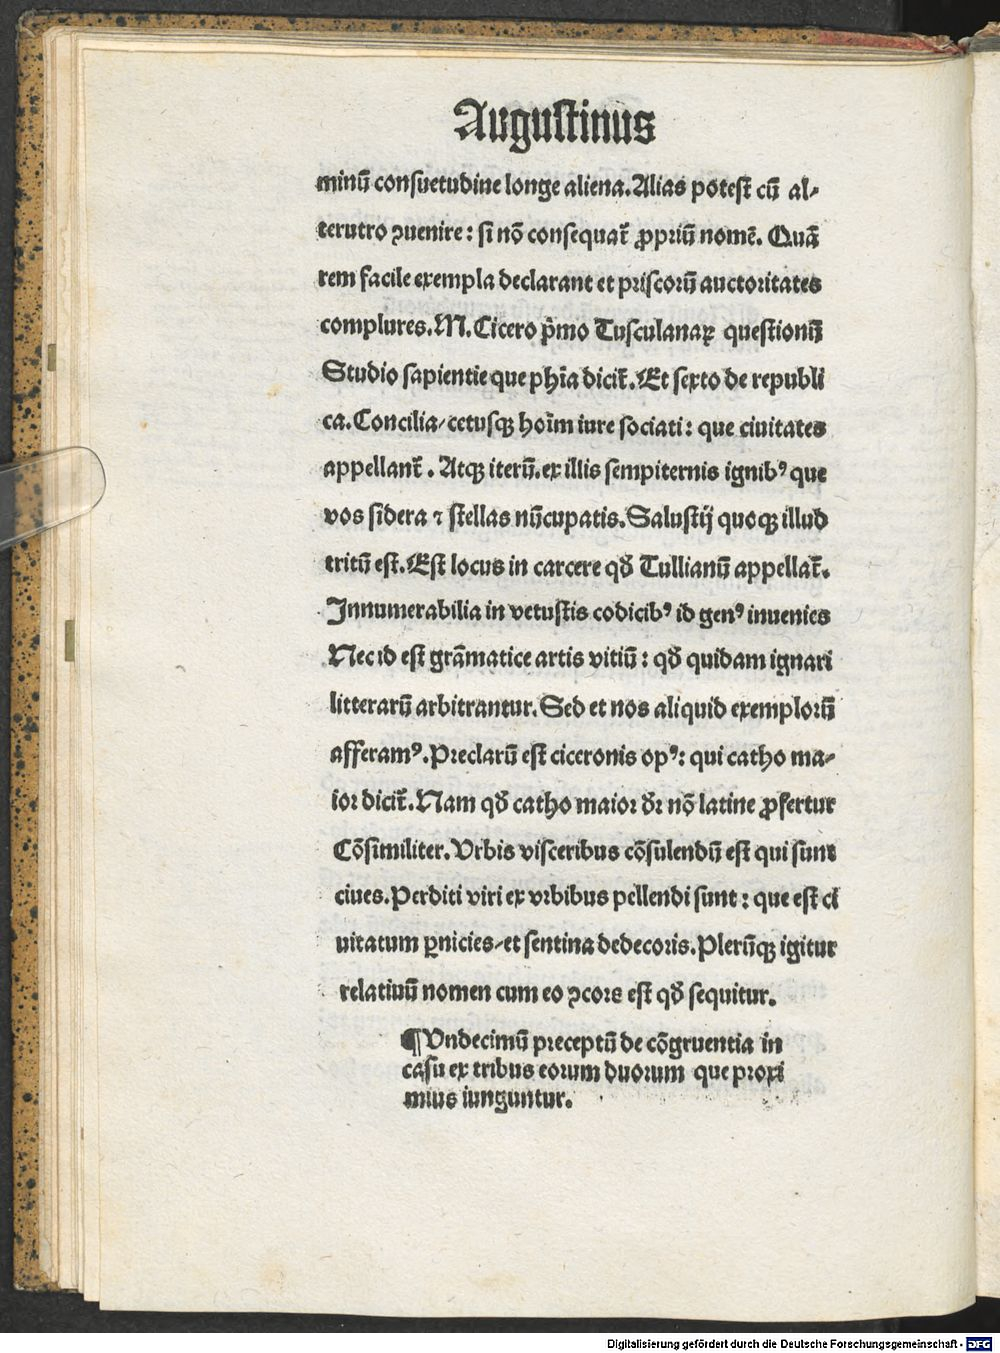 Augustinus
minū consuetudine longe aliena. Alias potest cū al-
terutro ꝯuenire: si nō consequat̄ ꝓpriū nomē. Quā
rem facile exempla declarant et priscorū auctoritates
complures. M. Cicero p̄mo Tusculanaꝝ questionū
Studio sapientie que phīa dicit̄. Et sexto de republi
ca. Concilia/ cetusqꝫ hoīm iure sociati: que ciuitates
appellant̄. Atqꝫ iterū. ex illis sempiternis ignibꝰ que
vos sidera ⁊ stellas nūcupatis. Salustij quoqꝫ illud
tritū est. Est locus in carcere qđ Tullianū appellat̄.
Innumerabilia in vetustis codicibꝰ id genꝰ inuenies
Nec id est grāmatice artis vitiū: qđ quidam ignari
litterarū arbitrantur. Sed et nos aliquid exemplorū
afferamꝰ. Preclarū est ciceronis opꝰ: qui catho ma-
ior dicit̄. Nam qđ catho maior đr nō latine ꝓfertur
Cōsimiliter. Vrbis visceribus cōsulendū est qui sunt
ciues. Perditi viri ex vrbibus pellendi sunt: que est ci
uitatum ꝑnicies/ et sentina dedecoris. Plerūqꝫ igitur
relatiuū nomen cum eo ꝯcors est qđ sequitur.
¶ Vndecimū preceptū de cōgruentia in
casu ex tribus eorum duorum que proxi
mius iunguntur.
Digitalisierung gefördert durch die Deutsche Forschungsgemeinschaft - DFG